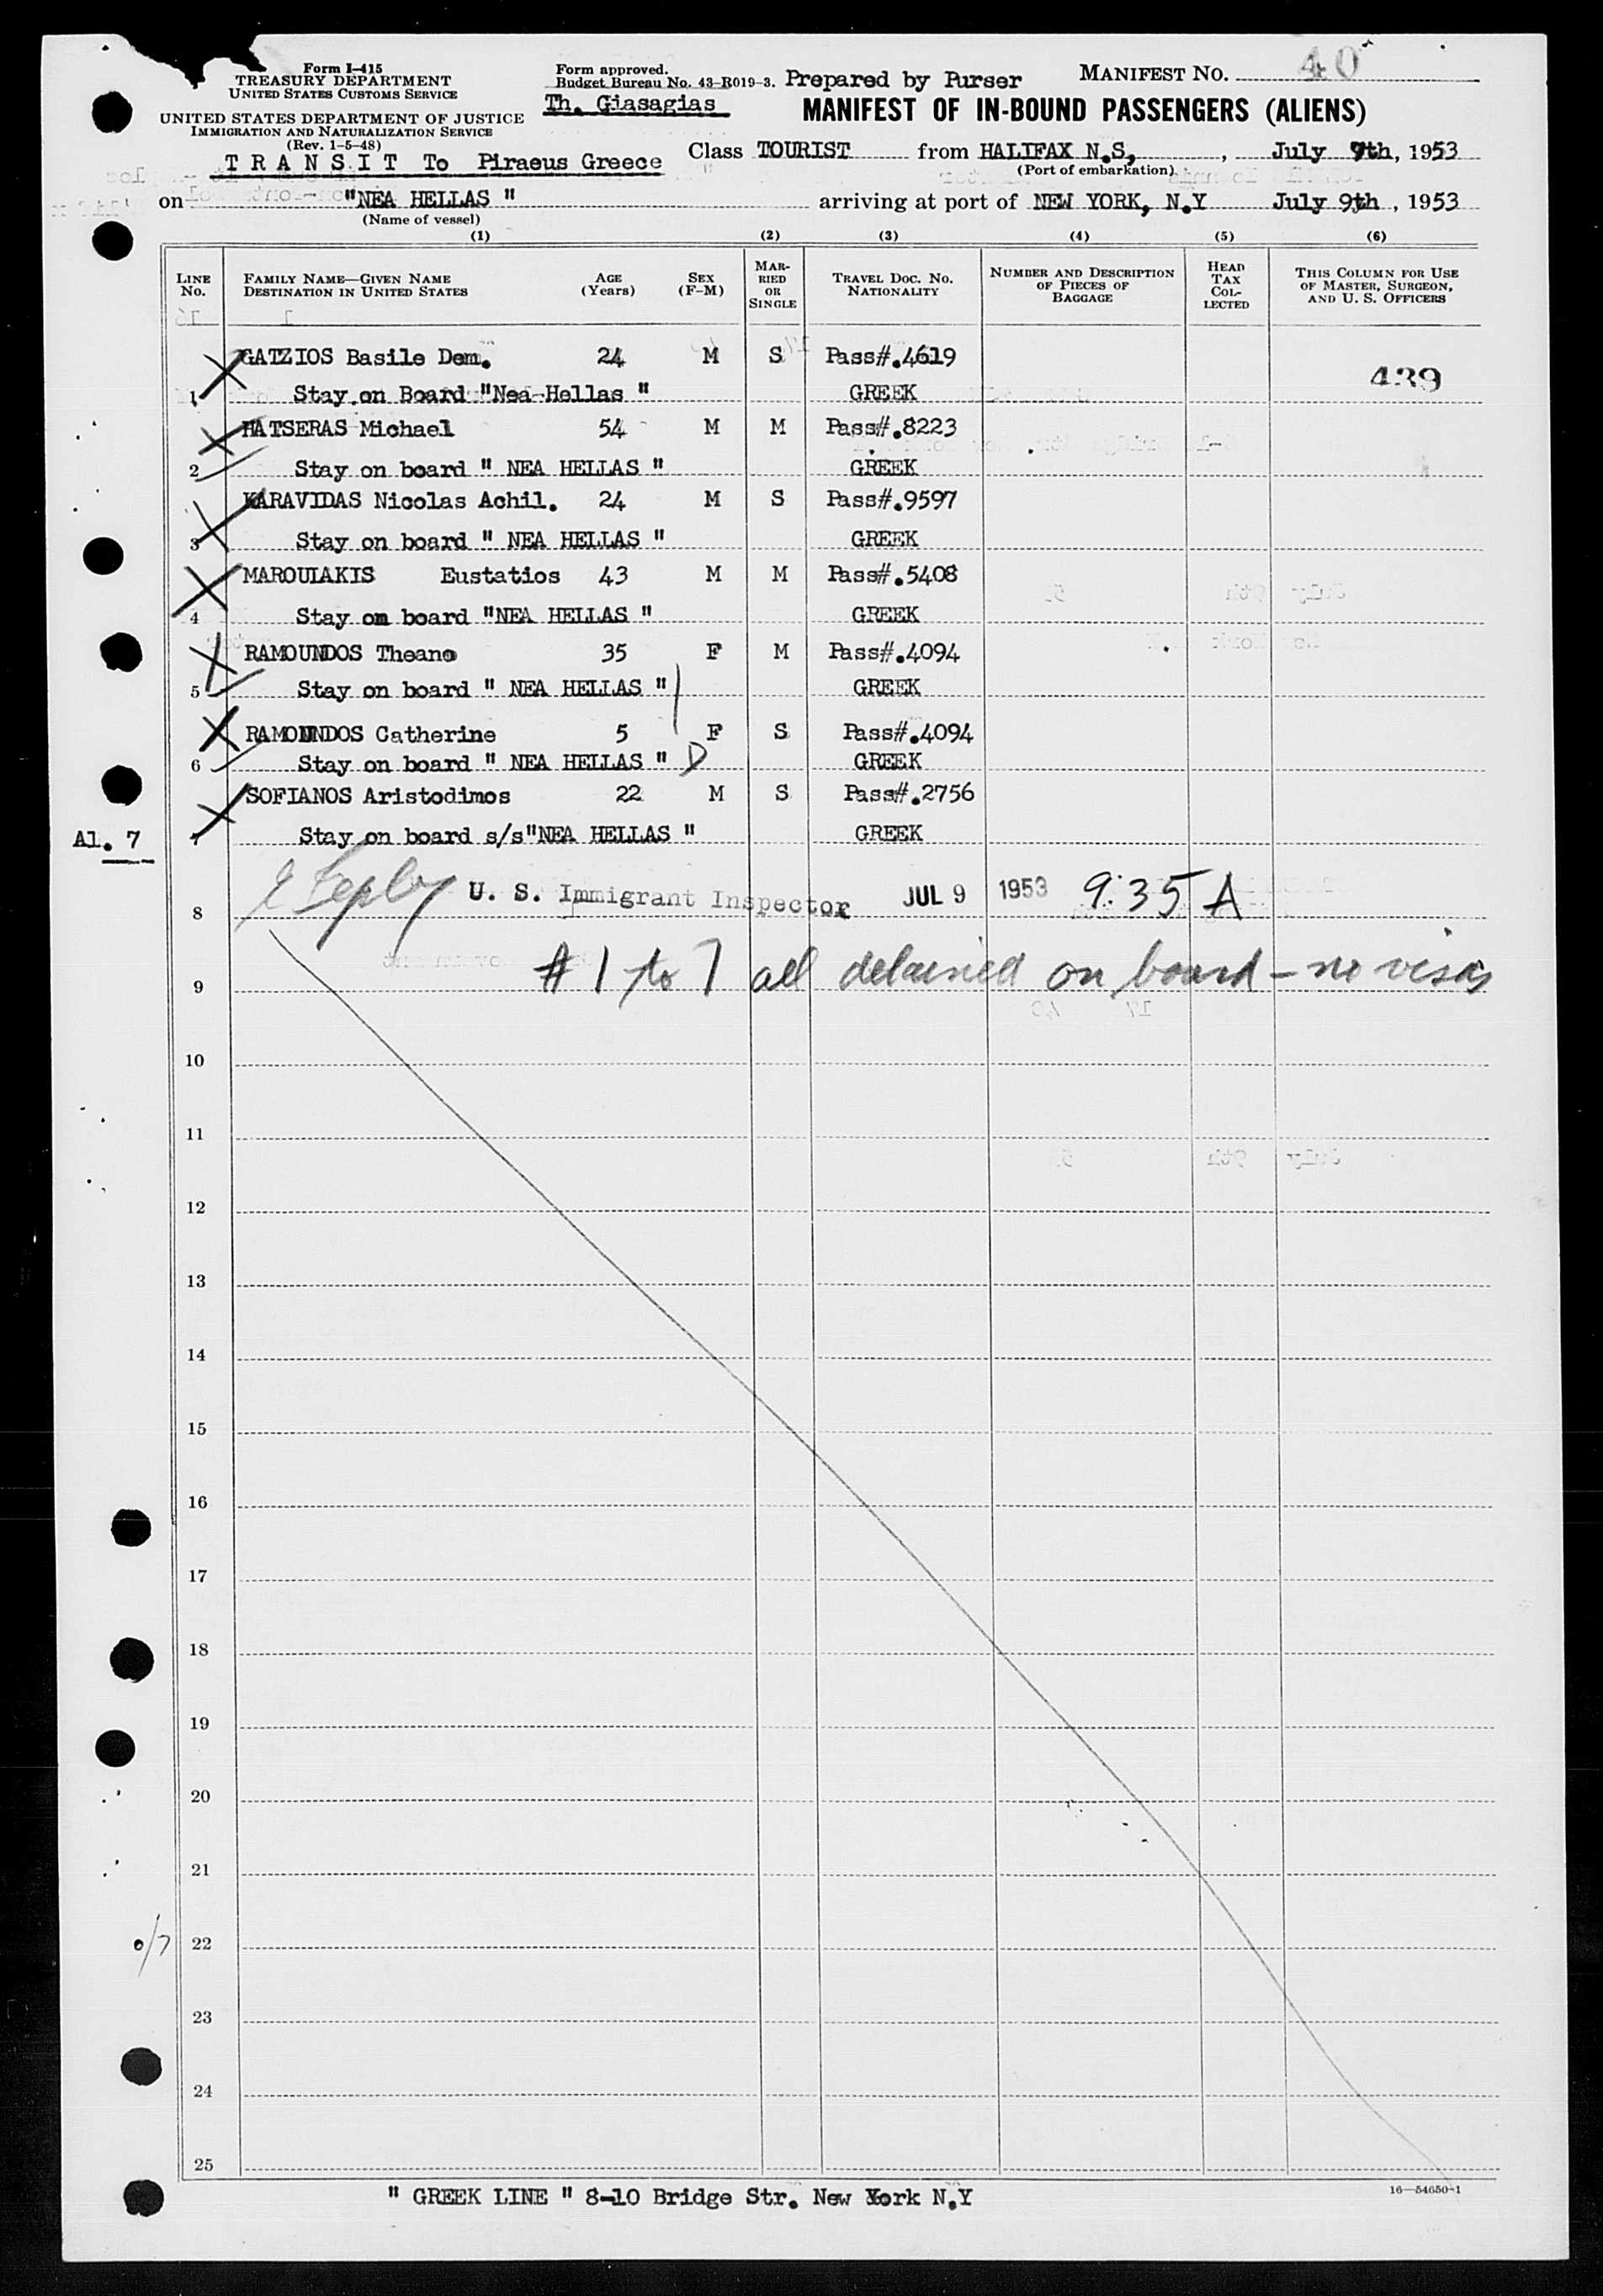 Form I-415
TREASURY DEPARTMENT
UNITED STATES CUSTOMS SERVICE
UNITED STATES DEPARTMENT OF JUSTICE
IMMIGRATION AND NATURALIZATION SERVICE
(Rev. 1-5-48)
Form approved.
Budget Bureau No. 43-R019-3.
Prepared by Purser
Th. Giasagias
MANIFEST NO. 40
MANIFEST OF IN-BOUND PASSENGERS (ALIENS)
T R A N S I T To Piraeus Greece
Class TOURIST from HALIFAX N.S, , July 9th, 1953
(Port of embarkation)
on "NEA HELLAS " arriving at port of NEW YORK, N.Y July 9th , 1953
(Name of vessel)
(1) (2) (3) (4) (5) (6)
LINE No. FAMILY NAME—GIVEN NAME DESTINATION IN UNITED STATES AGE (Years) SEX (F-M) MARRIED OR SINGLE TRAVEL DOC. NO. NATIONALITY NUMBER AND DESCRIPTION OF PIECES OF BAGGAGE HEAD TAX COLLECTED THIS COLUMN FOR USE OF MASTER, SURGEON, AND U. S. OFFICERS
GATZIOS Basile Dem. 24 M S Pass#.4619
439
1 Stay on Board "Nea-Hellas " GREEK
HATSERAS Michael 54 M M Pass#.8223
2 Stay on board " NEA HELLAS " GREEK
KARAVIDAS Nicolas Achil. 24 M S Pass#.9597
3 Stay on board " NEA HELLAS " GREEK
MAROULAKIS Eustatios 43 M M Pass#.5408
4 Stay on board "NEA HELLAS " GREEK
RAMOUNDOS Theano 35 F M Pass#.4094
5 Stay on board " NEA HELLAS " GREEK
RAMOUNDOS Catherine 5 F S Pass#.4094
6 Stay on board " NEA HELLAS " D GREEK
SOFIANOS Aristodimos 22 M S Pass#.2756
Al. 7 7 Stay on board s/s"NEA HELLAS " GREEK
8 U. S. Immigrant Inspector JUL 9 1953 9:35 A
9 # 1 to 7 all detained on board - no visas
10
11
12
13
14
15
16
17
18
19
20
21
0/7 22
23
24
25
" GREEK LINE " 8-10 Bridge Str. New York N.Y
16—54650-1